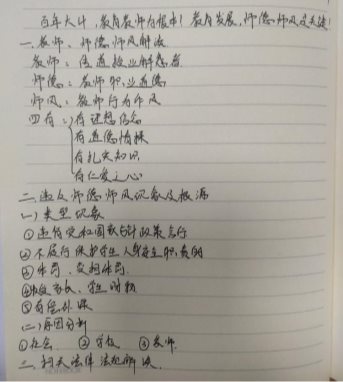 百年大计，教育教师为根本！教育发展，师德师风是关键！
一、教师、师德、师风解读
教师：传道授业解惑者
师德：教师职业道德
师风：教师行为作风
四有：有理想信念
有道德情操
有扎实知识
有仁爱之心
二、违反师德师风现象及根源
(一)类型现象
①违背党和国家方针政策言行
②不履行保护学生人身安全职责的
③体罚、变相体罚
④收受家长、学生财物
⑤有偿补课
(二)原因分析
①社会 ②学校 ③教师
三、相关法律法规解读